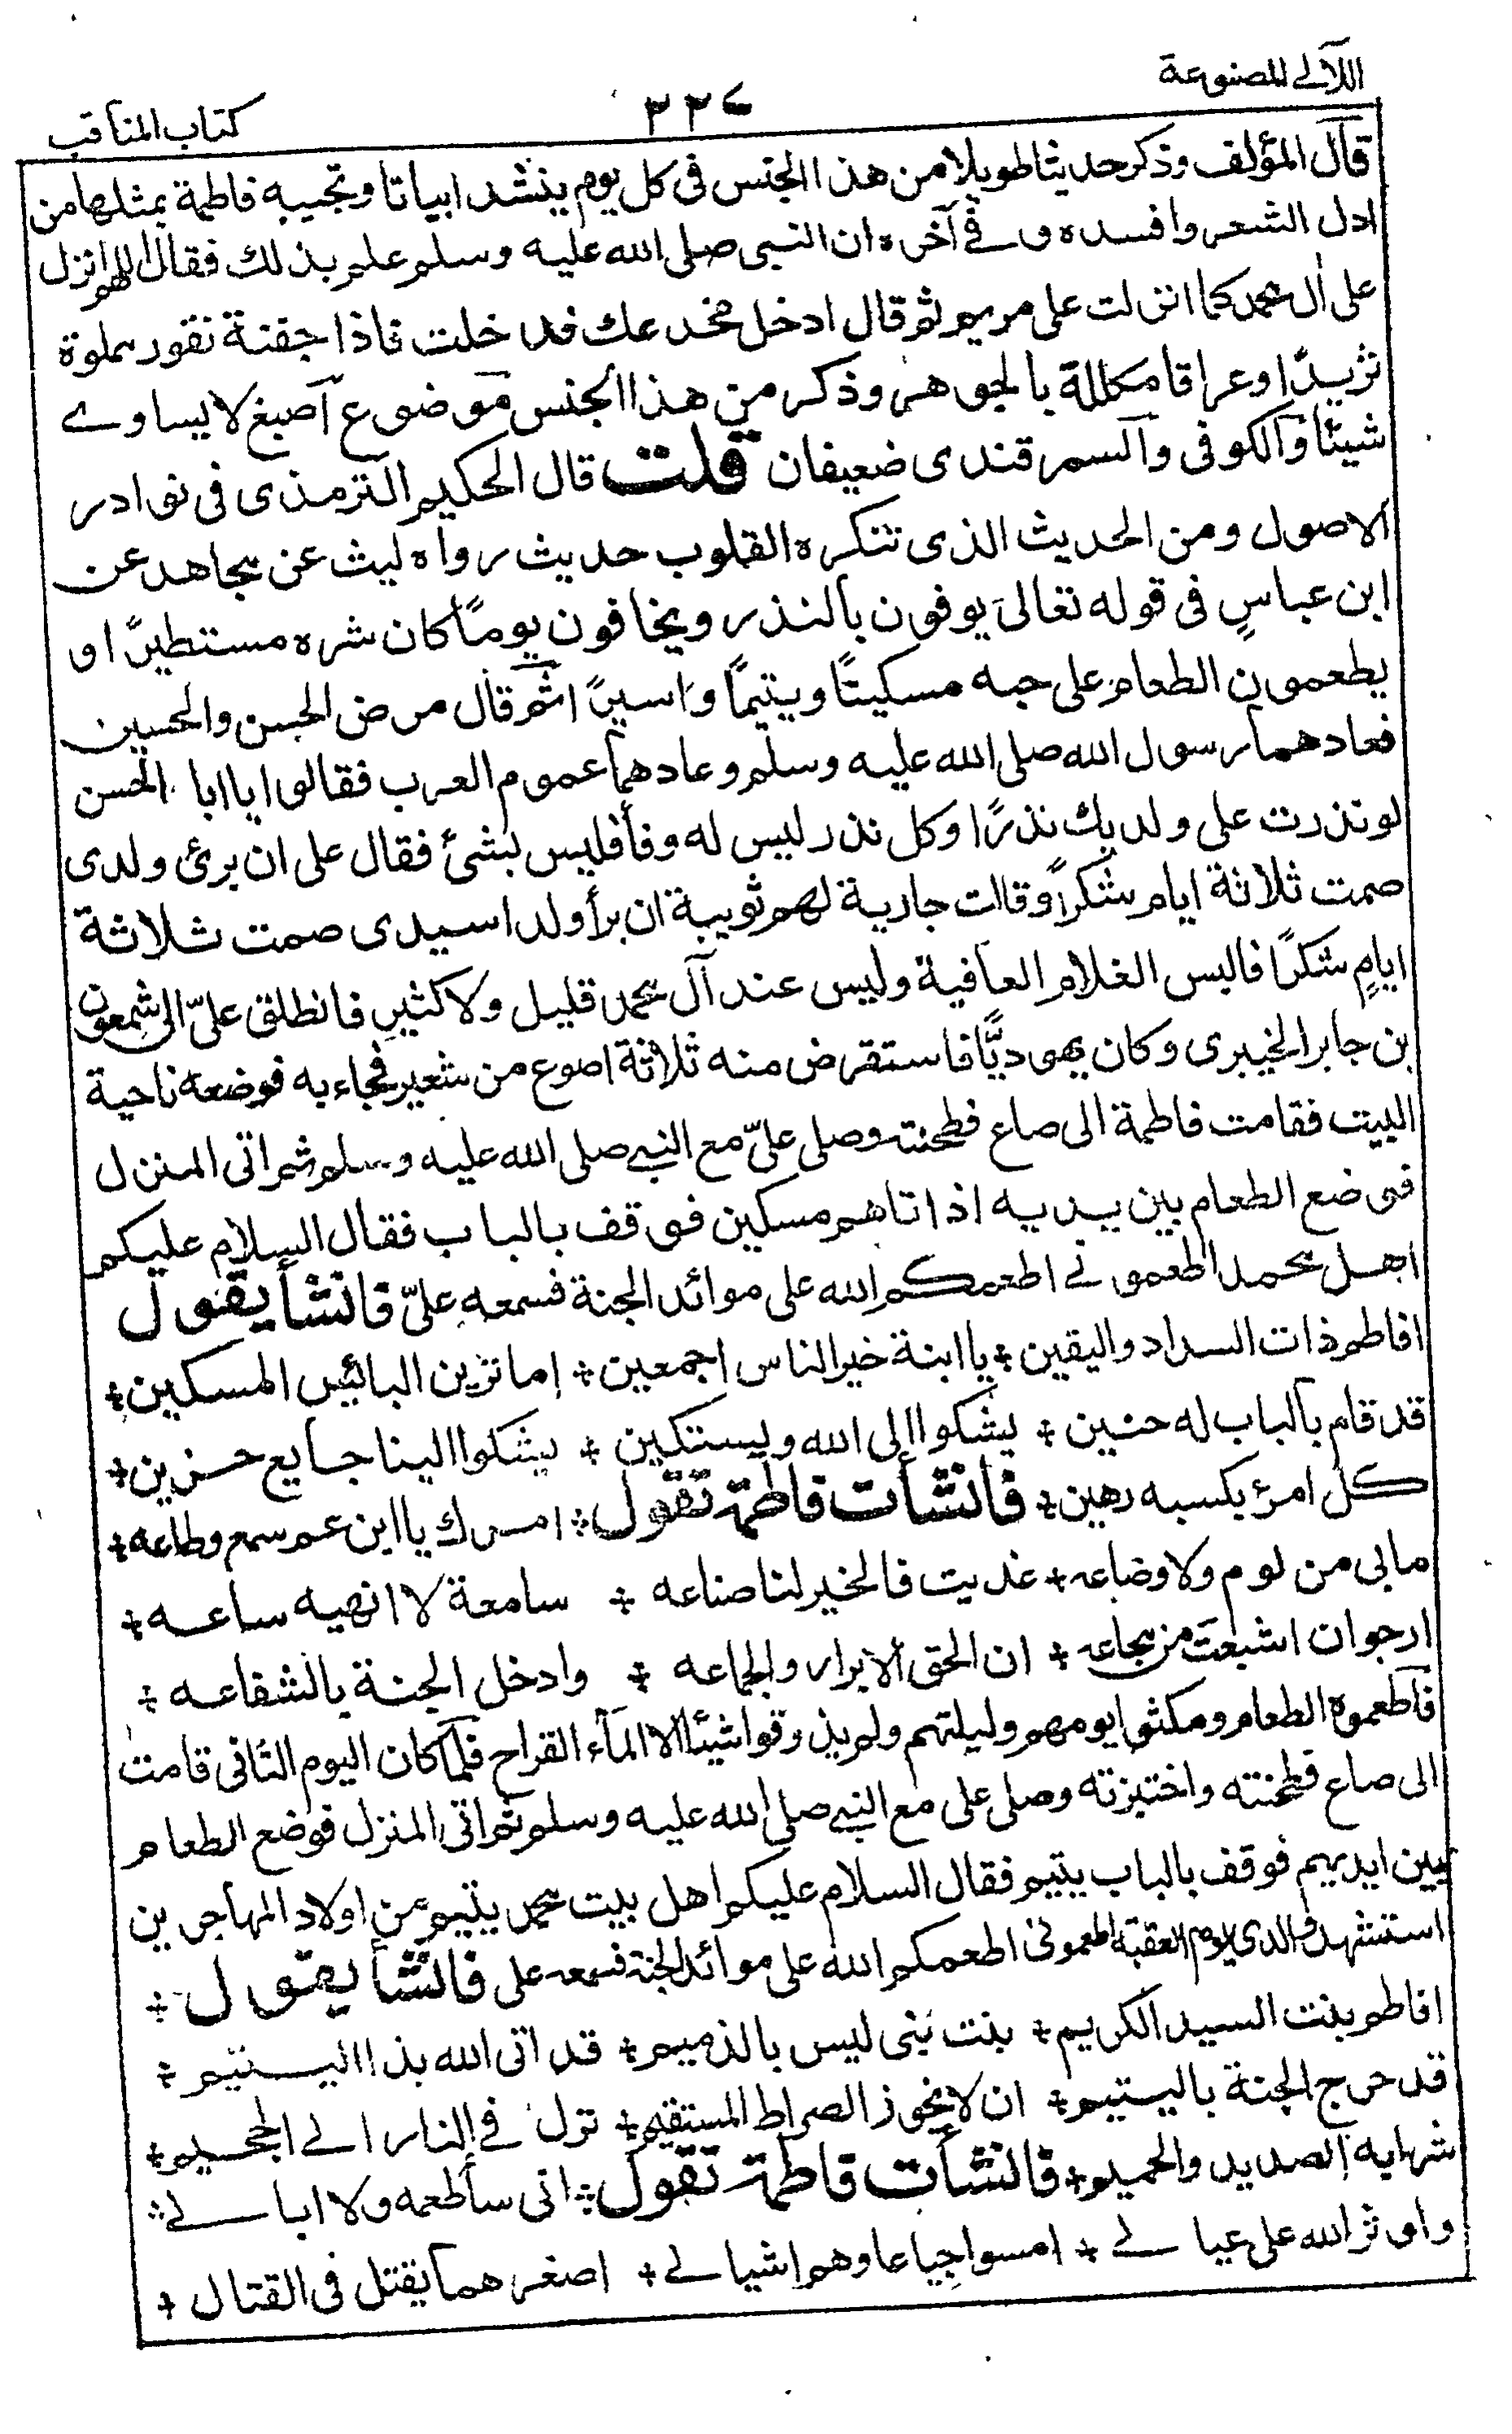 اللآلے للصنوعة
٣٢٤
كتاب المناقب
قال المؤلف وذكر حديثا طويلا من هذا الجنس فى كل يوم ينشد ابياتا وتجيبه فاطمة بمثلها من
ادل الشعر وافسده وفے آخره ان النبى صلى الله عليه وسلم علم بذلك فقال اللهم انزل
على آل محمد كما انزلت على مريم ثم قال ادخل مخدعك فدخلت فاذا جفنة تفور مملوة
ثريدًا وعراقا مكللة بالجوهر وذكر من هذا الجنس موضوع آصبغ لا يساوے
شيئًا والكوفى والسمرقندى ضعيفان قلت قال الحكيم الترمذى فى نوادر
الاصول ومن الحديث الذى تنكره القلوب حديث رواه ليث عن مجاهد عن
ابن عباسٍ فى قوله تعالى يوفون بالنذر ويخافون يومًا كان شره مستطيرًا و
يطعمون الطعام على حبه مسكينًا ويتيمًا واسيرًا ثم قال مرض الحسن والحسين
فعادهما رسول الله صلى الله عليه وسلم وعادهما عموم العرب فقالوا يا ابا الحسن
لو نذرت على ولديك نذرًا وكل نذر ليس له وفأ فليس بشئ فقال على ان برئ ولدى
صمت ثلاثة ايام شكرًا وقالت جارية لهم ثويبة ان برأ ولدا سيدى صمت ثلاثة
ايامٍ شكرًا فالبس الغلام العافية وليس عند آل محمد قليل ولا كثيرٍ فانطلق علىّ الى شمعون
بن جابر الخيبرى وكان يهوديًّا فاستقرض منه ثلاثة اصوع من شعير فجاء به فوضعه ناحية
البيت فقامت فاطمة الى صاع فطحنته وصلى علىّ مع النبے صلى الله عليه وسلم ثم اتى المنزل
فوضع الطعام بين يديه اذ اتاهم مسكين فوقف بالباب فقال السلام عليكم
اهل محمد اطعمونے اطعمكم الله على موائد الجنة فسمعه علىّ فانشأ يقول
افاطم ذات السداد واليقين ÷ يا ابنة خير الناس اجمعين ÷ اما ترين البائس المسكين ÷
قد قام بالباب له حنين ÷ يشكوا الى الله ويستكين ÷ يشكوا الينا جايع حزين ÷
كل امرئ بكسبه رهين ÷ فانشأت فاطمة تقول ÷ امرك يا ابن عم سمع وطاعه ÷
مابى من لوم ولا وضاعه ÷ غديت فالخير لنا صناعه ÷ سامعة لا انهيه ساعه ÷
ارجوان اشبعت من مجاعه ÷ ان الحق الابرار والجماعه ÷ وادخل الجنة بالشفاعه ÷
فاطعموه الطعام ومكثوا يومهم وليلتهم ولم يذوقوا شيئا الا المآء القراح فلما كان اليوم الثانى قامت
الى صاع فطحنته واختبزته وصلى على مع النبے صلى الله عليه وسلم ثم اتى المنزل فوضع الطعام
بين ايديهم فوقف بالباب يتيم فقال السلام عليكم اهل بيت محمد يتيم من اولاد المهاجرين
استشهد والدى يوم العقبة اطعمونى اطعمكم الله على موائد الجنة فسمعه على فانشأ يقول ÷
افاطم بنت السيد الكريم ÷ بنت نبى ليس بالذميم ÷ قد اتى الله بذا اليتيم ÷
قد حرج الجنة باليتيم ÷ ان لا يجوز الصراط المستقيم ÷ تزل فے النار الے الجحيم ÷
شرابه الصديد والحميم ÷ فانشأت فاطمة تقول ÷ انى سأطعمه ولا ابالے ÷
واوثر الله على عيالے ÷ امسوا جياعا وهم اشبالے ÷ اصغرهما يقتل فى القتال ÷